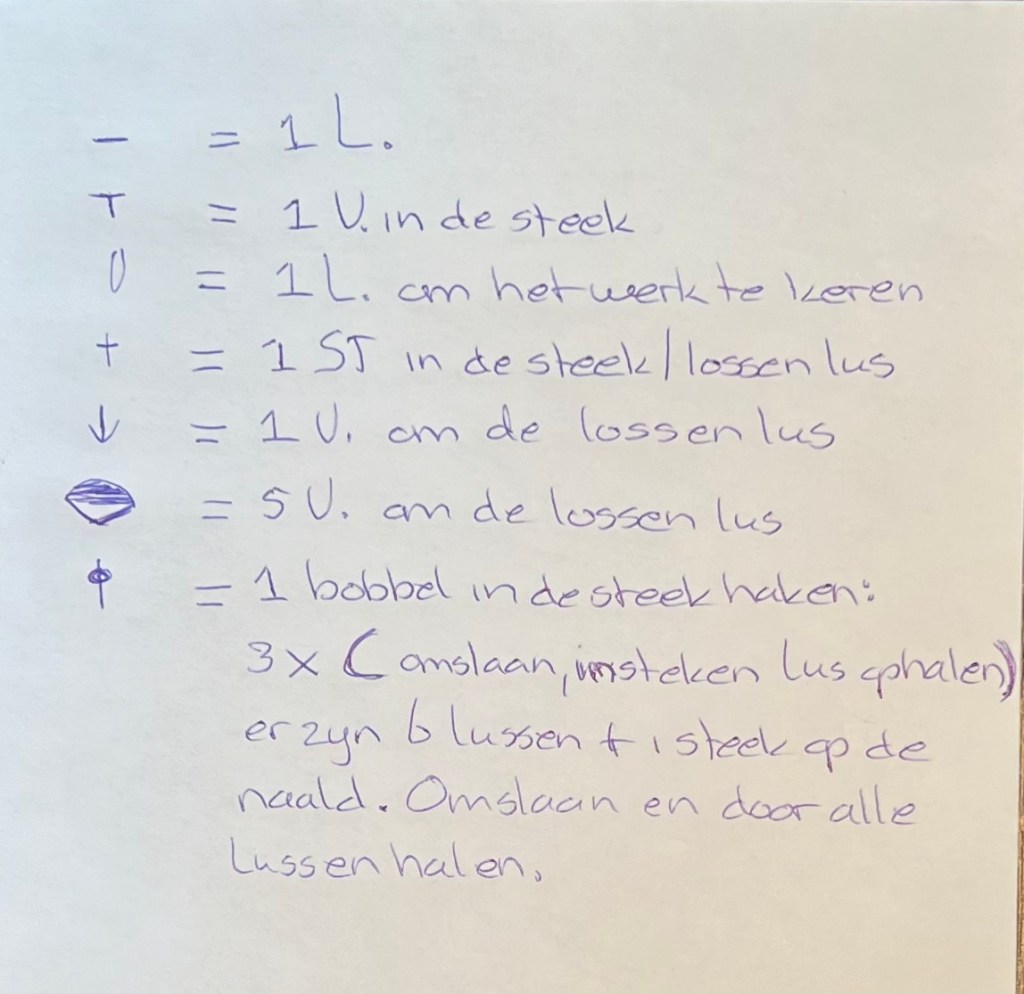 - = 1 L.
T = 1 V. in de steek
0 = 1 L. om het werk te keren
+ = 1 ST in de steek/lossen lus
↓ = 1 V. om de lossen lus
= 5 V. om de lossen lus
= 1 bobbel in de steek haken:
3 x (omslaan, insteken lus ophalen)
er zyn 6 lussen + 1 steek op de
naald. Omslaan en door alle
lussen halen.